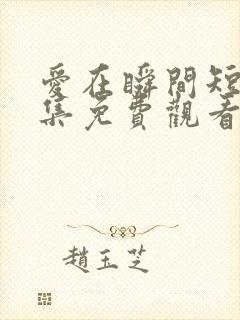 愛在瞬間短
集免費觀看
趙玉芝